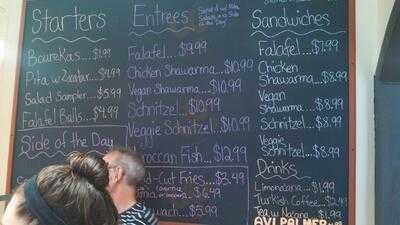 Starters
Bourekas...$1.99
Pita w/Zaatar...$4.99
Salad Sampler...$5.99
Falafel Balls...$4.99
Side of the Day
Entrees
Served w/ Pita
Falafel...$9.99
Chicken Shawarma...$10.99
Vegan Shawarma...$10.99
Schnitzel...$10.99
Veggie Schnitzel...$10.99
roccan Fish...$12.99
d-Cut Fries...$3.49
$6.49
$5.99
Sandwiches
Falafel...$7.99
Chicken
Shawarma...$8.99
Vegan
Shawarma...$8.99
Schnitzel...$8.99
Veggie
Schnitzel...$8.99
Drinks
Limonana...$1.99
Turkish Coffee...$2.49
Tea w/Nana...$1.99
AVI PALMER